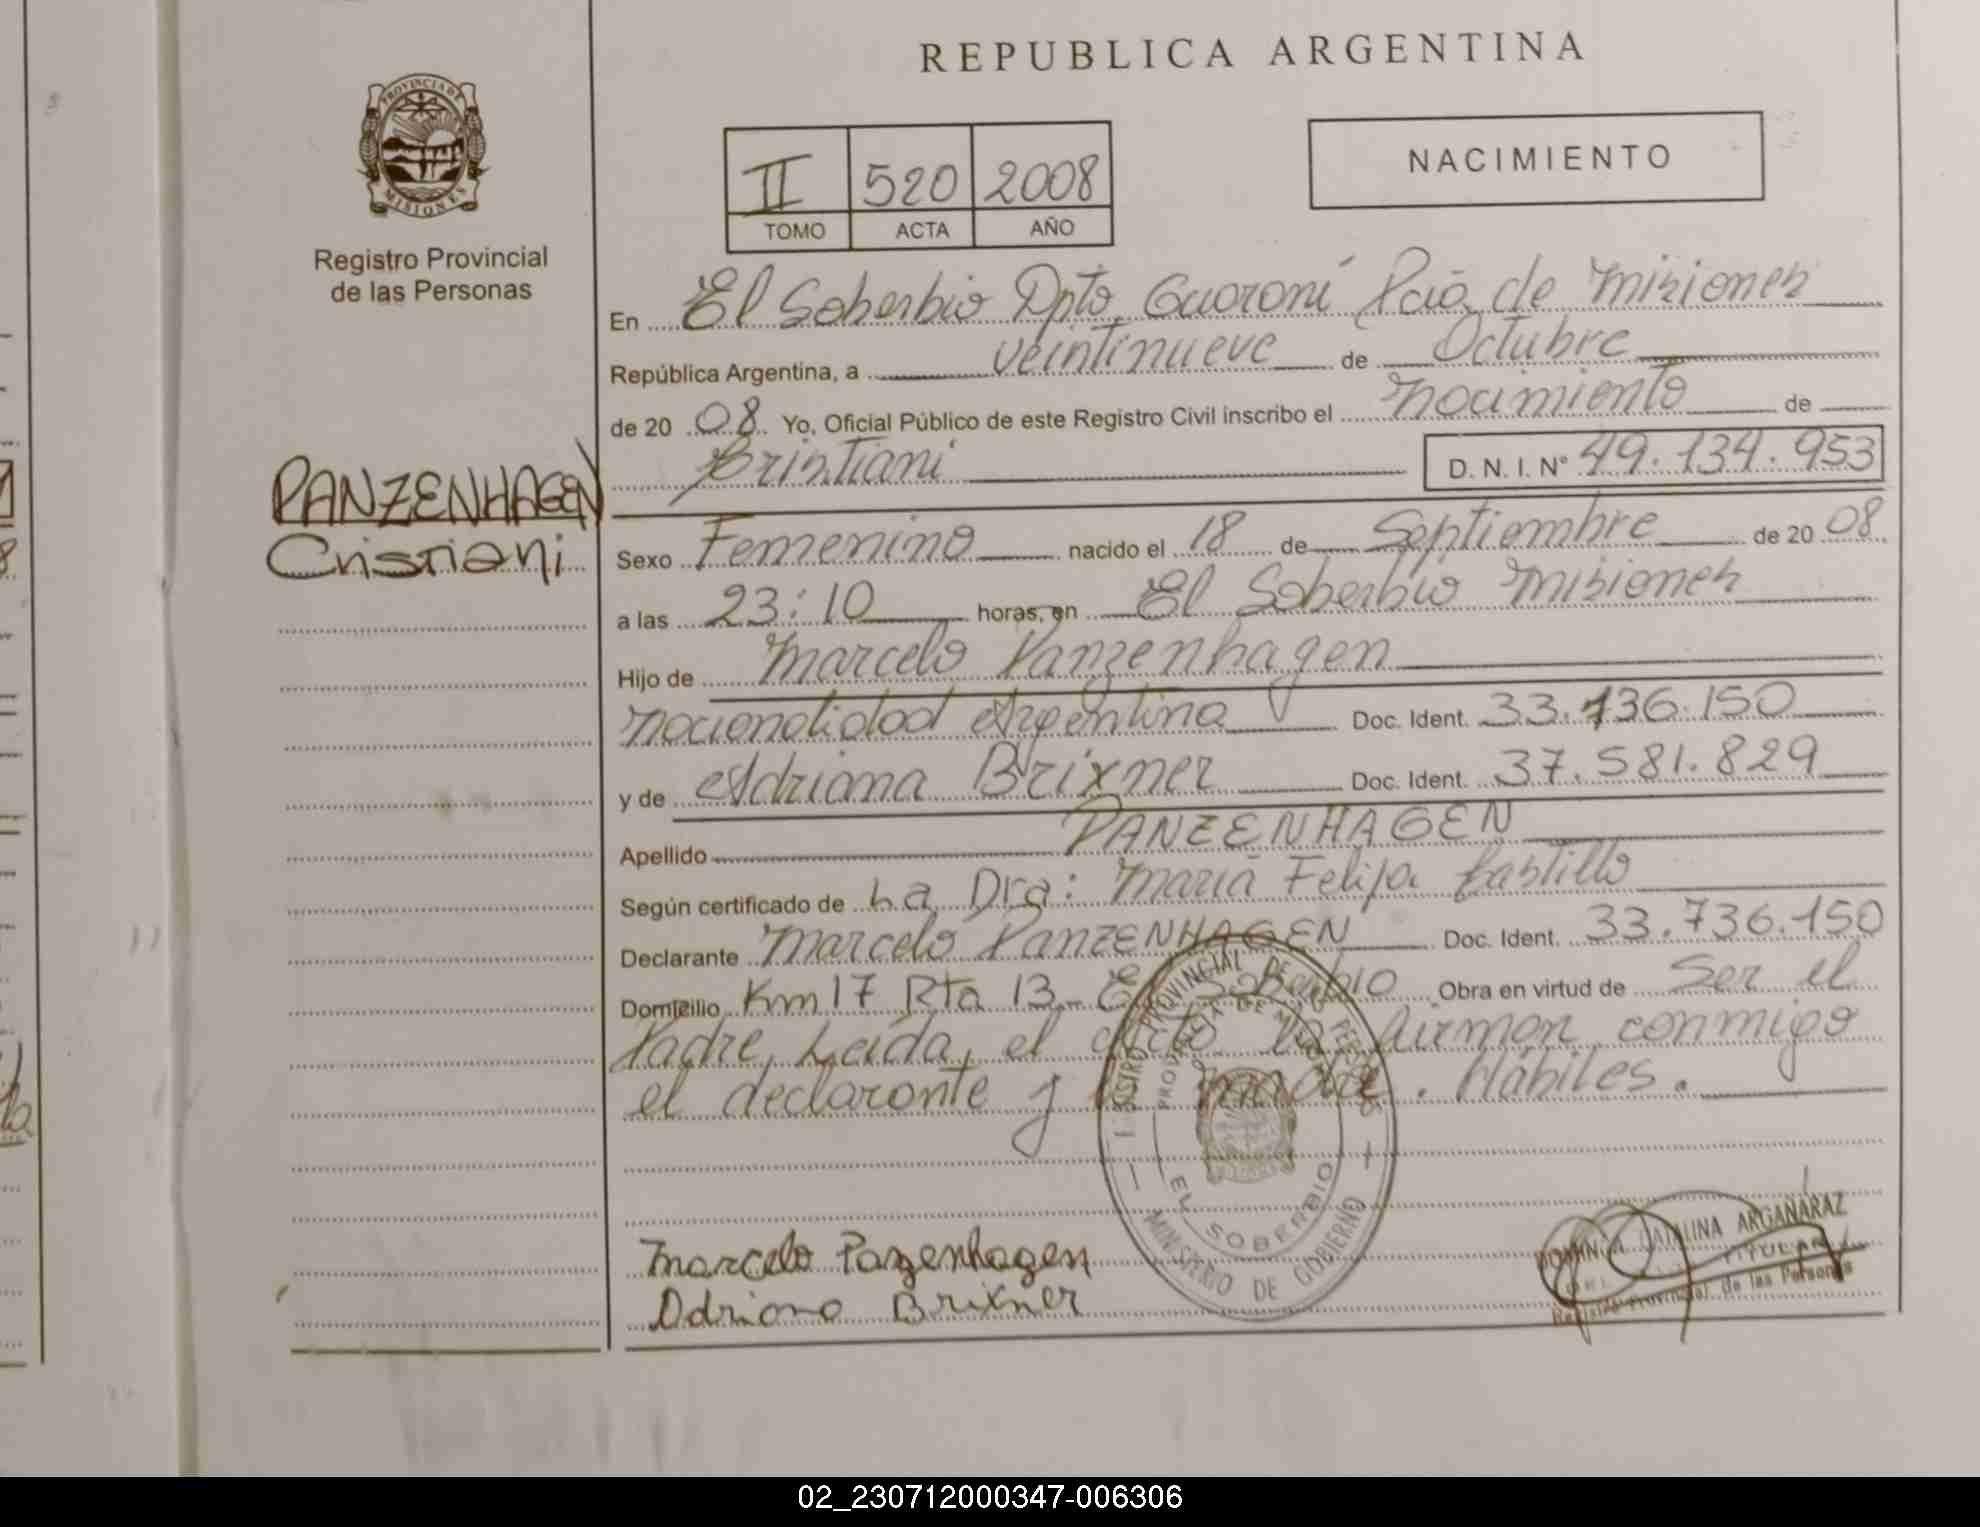 REPUBLICA ARGENTINA
PROVINCIA DE
MISIONES
Registro Provincial
de las Personas
II 520 2008
TOMO ACTA AÑO
NACIMIENTO
En El Soberbio Dpto. Guaraní Pcia de Misiones
República Argentina, a veintinueve de Octubre
de 20 08 Yo, Oficial Público de este Registro Civil inscribo el nacimiento de
Cristiani D. N. I. Nº 49.134.953
PANZENHAGEN
Cristiani
Sexo Femenino nacido el 18 de Septiembre de 20 08
a las 23:10 horas, en El Soberbio Misiones
Hijo de Marcelo Panzenhagen
nacionalidad Argentina Doc. Ident. 33.736.150
y de Adriana Brixner Doc. Ident. 37.581.829
Apellido PANZENHAGEN
Según certificado de La Dra: Maria Felipa Castillo
Declarante Marcelo PANZENHAGEN Doc. Ident. 33.736.150
Domicilio Km 17 Rta 13 El Soberbio Obra en virtud de Ser el
Padre, Leída, el acta la firman conmigo
el declarante y la madre. Hábiles.
REGISTRO PROVINCIAL DE LAS PERSONAS
PROVINCIA DE MISIONES
EL SOBERBIO
MINISTERIO DE GOBIERNO
Marcelo Panzenhagen
Adriana Brixner
CATALINA ARGAÑARAZ
TITULAR
Registro Provincial de las Personas
02_230712000347-006306